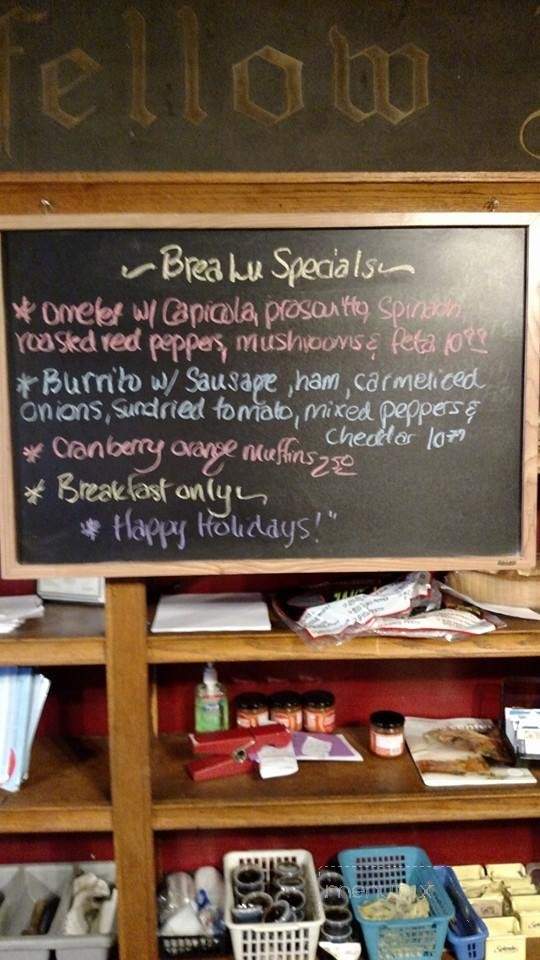 fellow
~ Brea Lu Specials ~
* omelet w/ Capicola, prosoutto, spinach,
roasted red peppers, mushrooms & feta 10⁹⁹
* Burrito w/ Sausage, ham, carmelized
onions, sundried tomato, mixed peppers &
cheddar 10⁹⁹
* Cranberry orange muffins 2⁵⁰
* Breakfast only ~
* Happy Holidays! "
menupix
Splenda